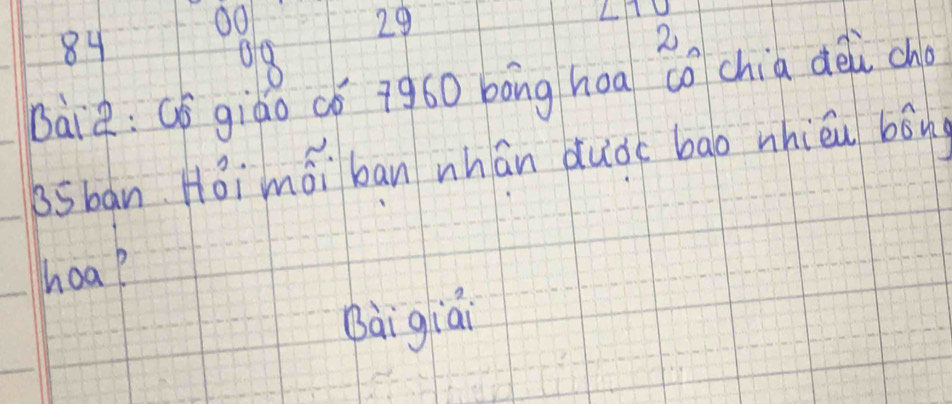 84 00 29
08 2
Bài 2: Cô giáo có 7960 bông hoa cô chia đều cho
35 bạn. Hỏi mỗi bạn nhận được bao nhiêu bông
hoa?
Bài giải